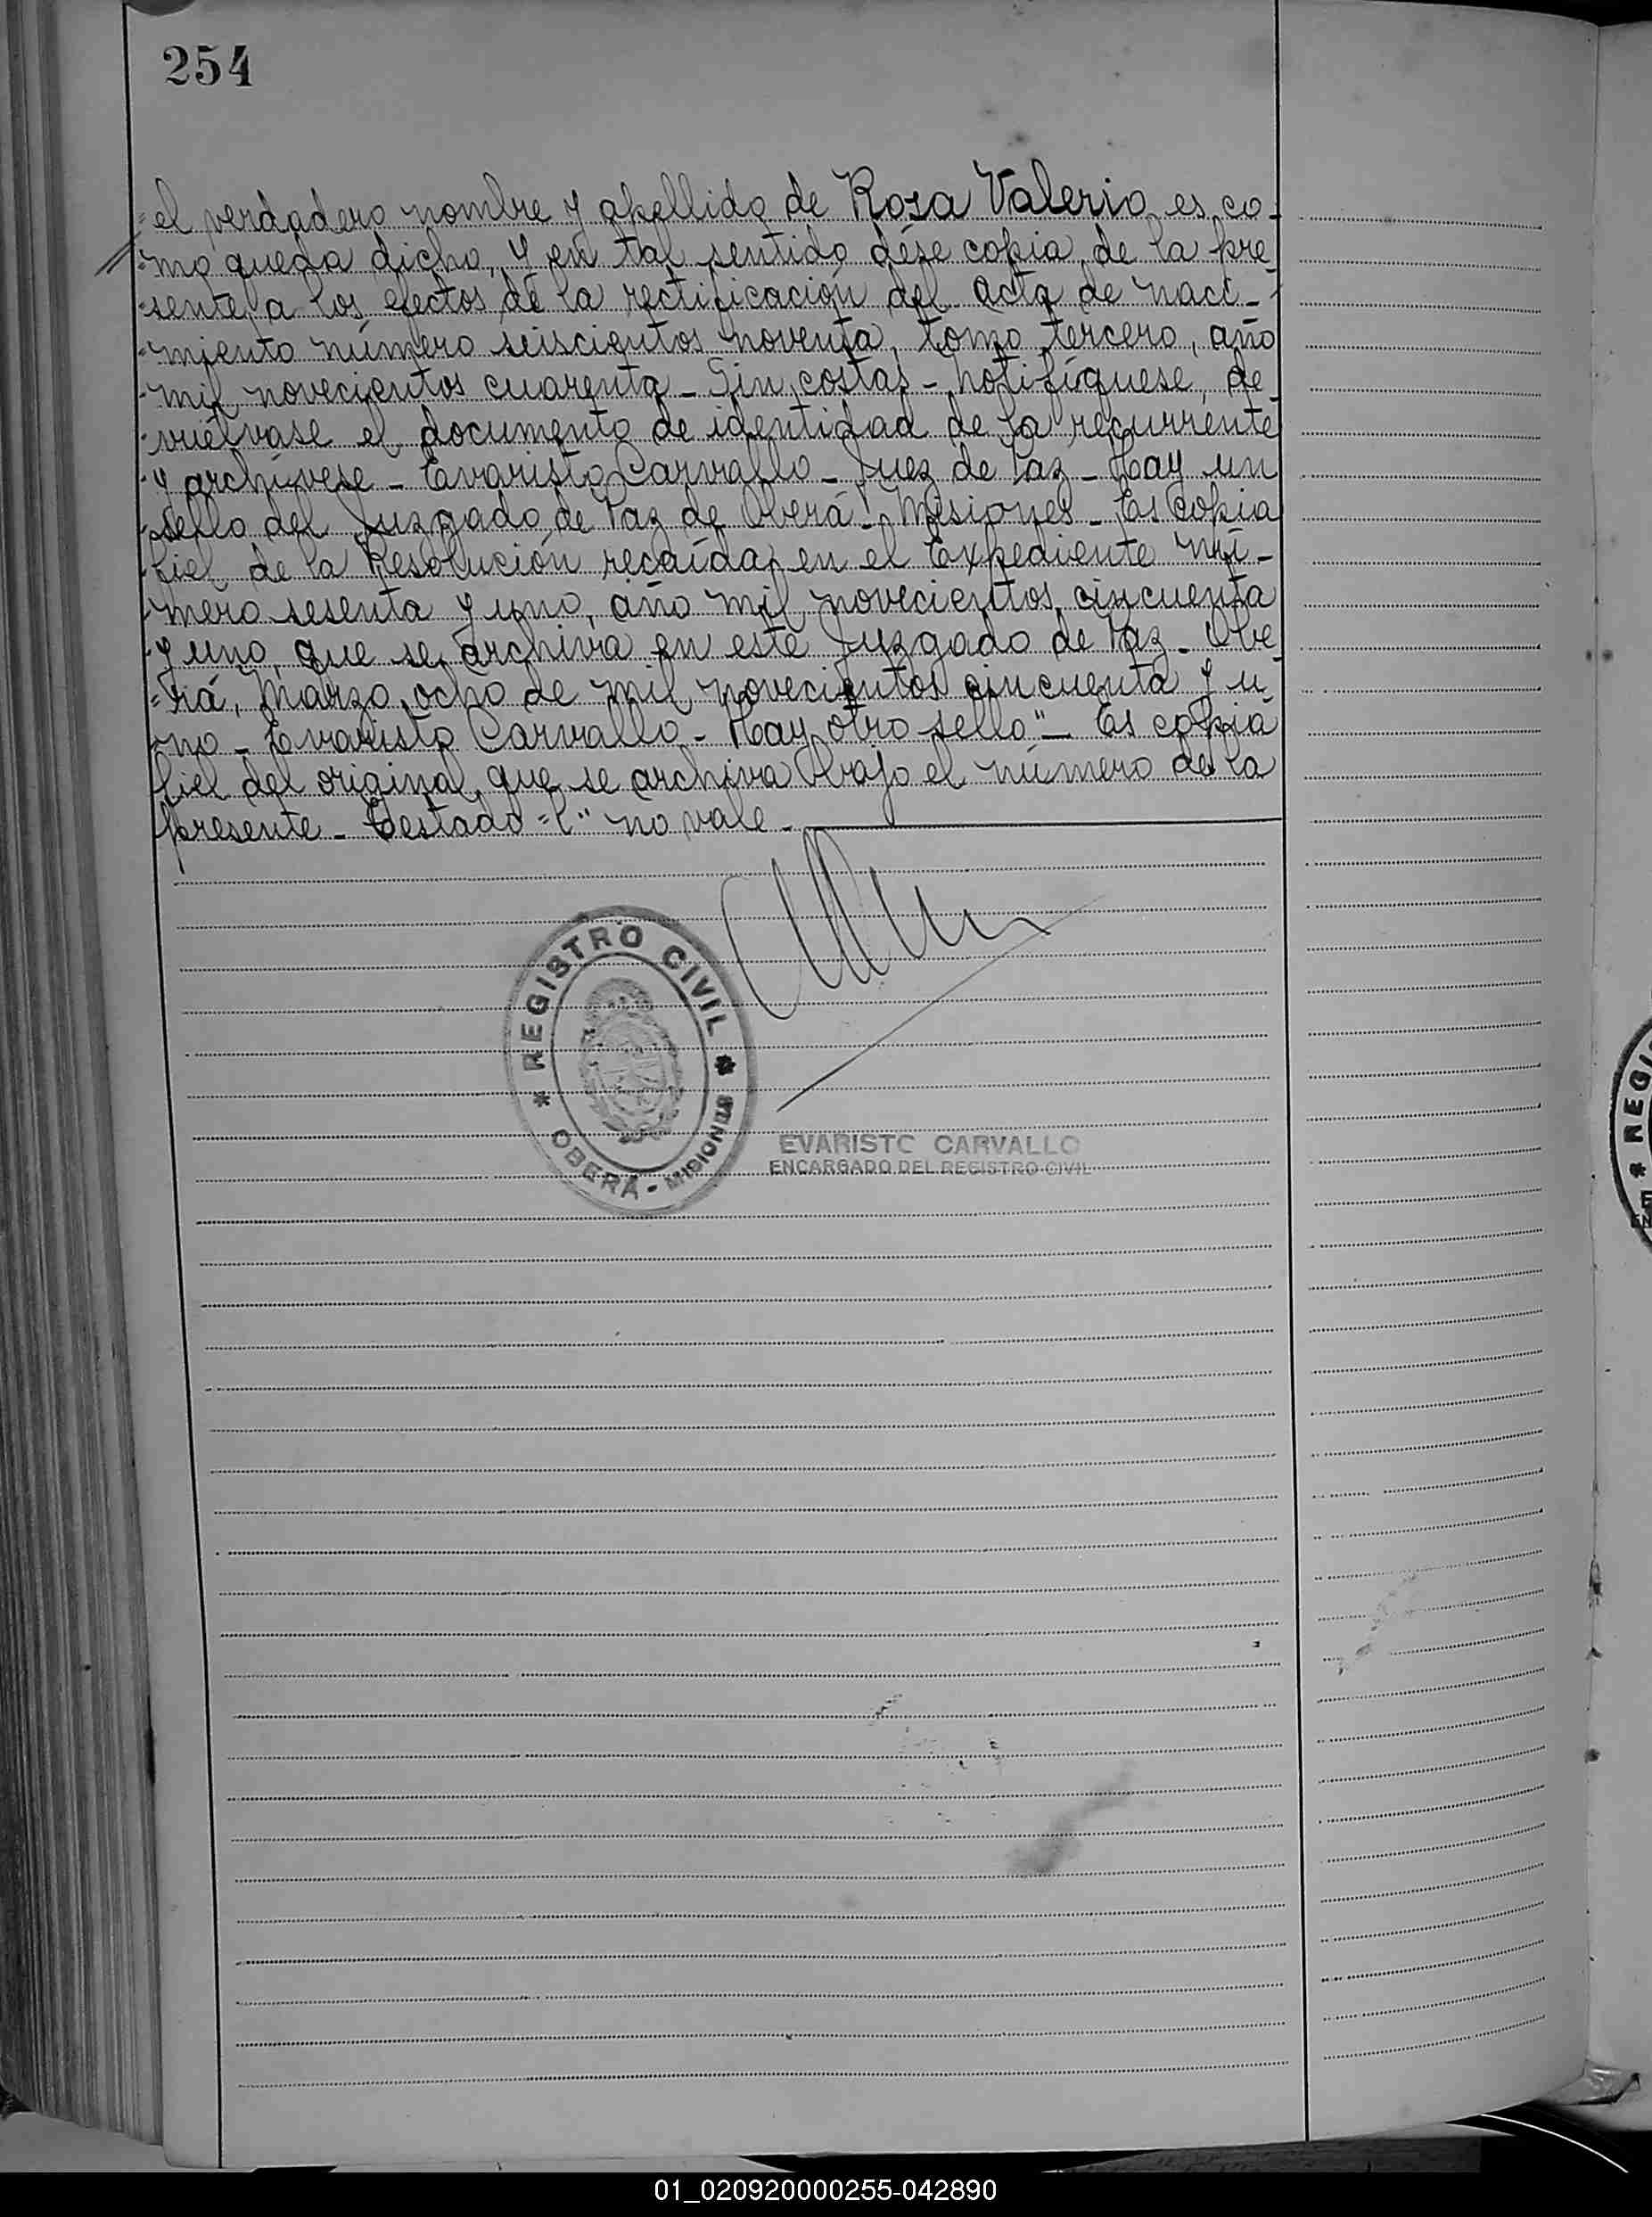 254
el verdadero nombre y apellido de Rosa Valerio, es co-
=mo queda dicho, y en tal sentido dése copia de la pre-
=sente, a los efectos de la rectificación del acta de naci-
=miento número seiscientos noventa, tomo tercero, año
mil novecientos cuarenta - Sin costas - Notifíquese, de-
vuélvase el documento de identidad de la recurrente
y archívese - Evaristo Carvallo - Juez de Paz - Hay un
sello del Juzgado de Paz de Oberá - Misiones - Es copia
fiel de la Resolución recaída en el Expediente nú-
mero sesenta y uno, año mil novecientos cincuenta
y uno, que se archiva en este Juzgado de Paz - Obe-
=rá, Marzo ocho de mil novecientos cincuenta y u-
no - Evaristo Carvallo - Hay otro sello" - Es copia
fiel del original, que se archiva bajo el número de la
presente - Testado = l" no vale -
REGISTRO CIVIL
* OBERÁ - MISIONES *
EVARISTO CARVALLO
ENCARGADO DEL REGISTRO CIVIL
* REGI
01_020920000255-042890